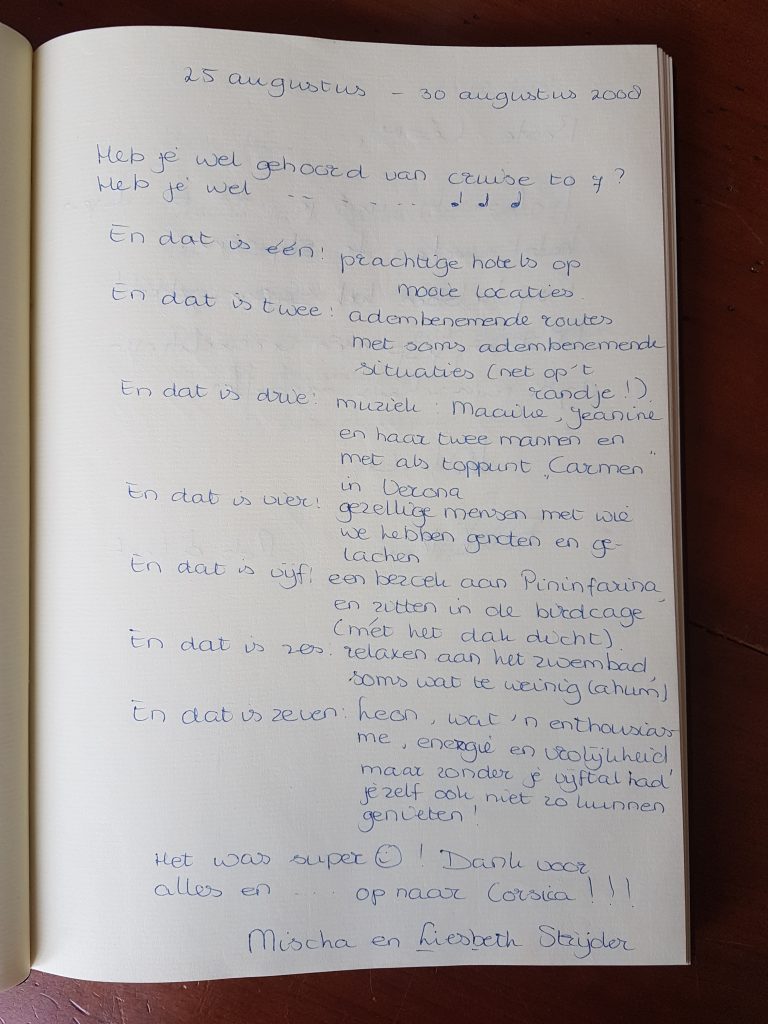 25 augustus – 30 augustus 2008
Heb je wel gehoord van cruise to 7?
Heb je wel ..... ♩ ♩ ♩
En dat is één! prachtige hotels op
mooie locaties.
En dat is twee! adembenemende routes
met soms adembenemende
situaties (net op 't
randje!).
En dat is drie! muziek: Maaike, Jeanine
en haar twee mannen en
met als toppunt „Carmen"
in Verona
En dat is vier! gezellige mensen met wie
we hebben genoten en ge-
lachen
En dat is vijf! een bezoek aan Pininfarina
en zitten in de birdcage
(mét het dak dicht).
En dat is zes: relaxen aan het zwembad,
soms wat te weinig (ahum)
En dat is zeven: Leon, wat 'n enthousias
me, energie en vrolijkheid
maar zonder je vijftal had
jezelf ook niet zo kunnen
genieten!
Het was super ☺! Dank voor
alles en .... op naar Corsica!!!
Mischa en Liesbeth Strijder